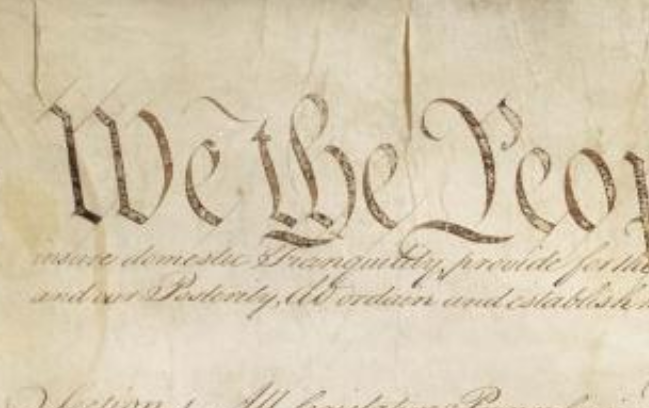 We the Peop
insure domestic Tranquility, provide for the
and our Posterity, do ordain and establish
Section. 1. All legislative Powers